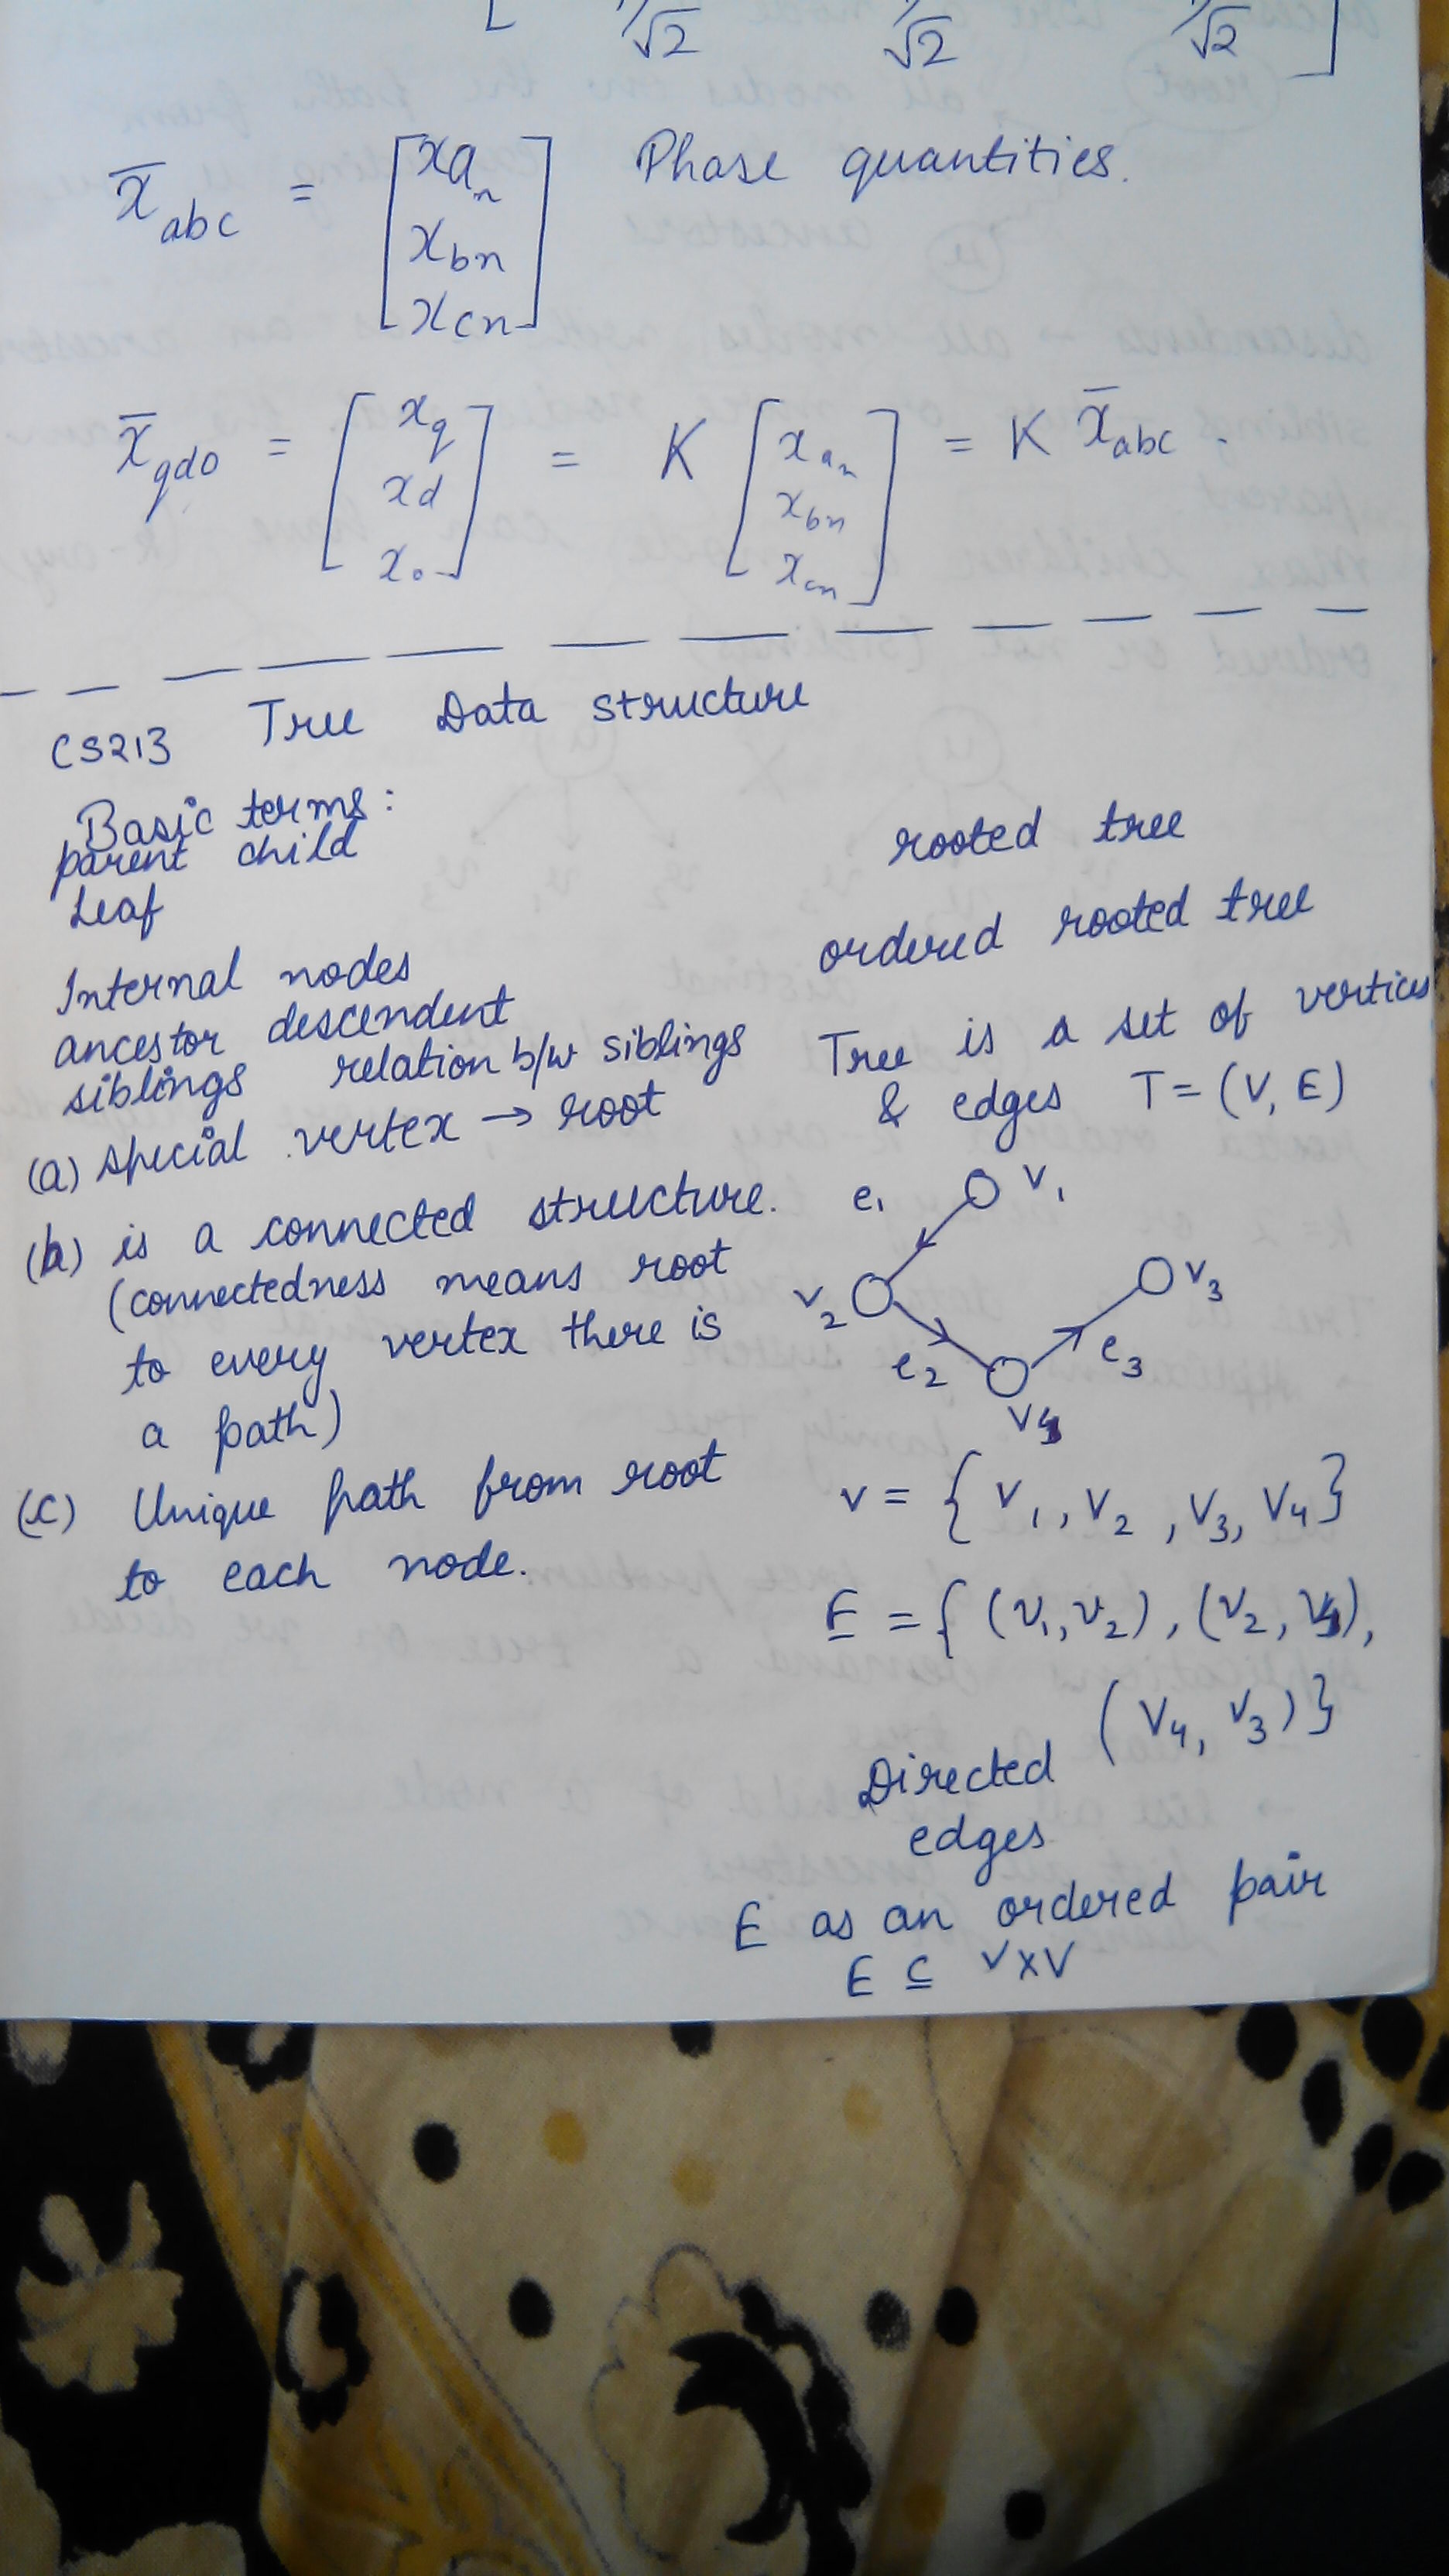 [ 1/√2 1/√2 1/√2 ]
x̄abc = [xan xbn xcn] Phase quantities.
x̄qdo = [xq xd xo] = K [xan xbn xcn] = K x̄abc .
CS213 Tree Data structure
Basic terms :
parent child
Leaf
Internal nodes
ancestor descendent
siblings relation b/w siblings
(a) special vertex → root
(b) is a connected structure.
(connectedness means root
to every vertex there is
a path)
(c) Unique path from root
to each node.
rooted tree
ordered rooted tree
Tree is a set of vertices
& edges T = (V, E)
e1 v1
v2 v3
e2 e3
v4
v = { v1, v2 , v3, v4}
E = { (v1, v2) , (v2, v4),
(v4, v3) }
Directed
edges
E as an ordered pair
E ⊆ V x V